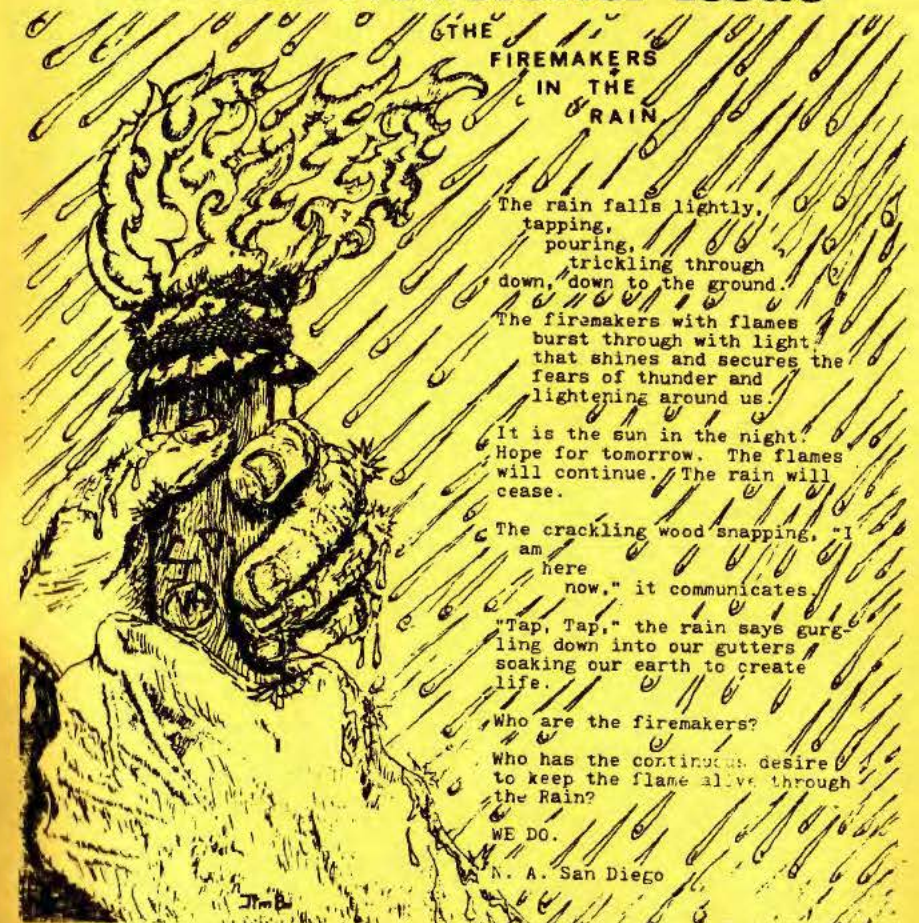 THE
FIREMAKERS
IN THE
RAIN
The rain falls lightly,
tapping,
pouring,
trickling through
down, down to the ground.
The firemakers with flames
burst through with light
that shines and secures the
fears of thunder and
lightening around us.
It is the sun in the night.
Hope for tomorrow. The flames
will continue. The rain will
cease.
The crackling wood snapping, "I
am
here
now," it communicates.
"Tap, Tap," the rain says gurg-
ling down into our gutters
soaking our earth to create
life.
Who are the firemakers?
Who has the continuous desire
to keep the flame alive through
the Rain?
WE DO.
N. A. San Diego
Jim B.